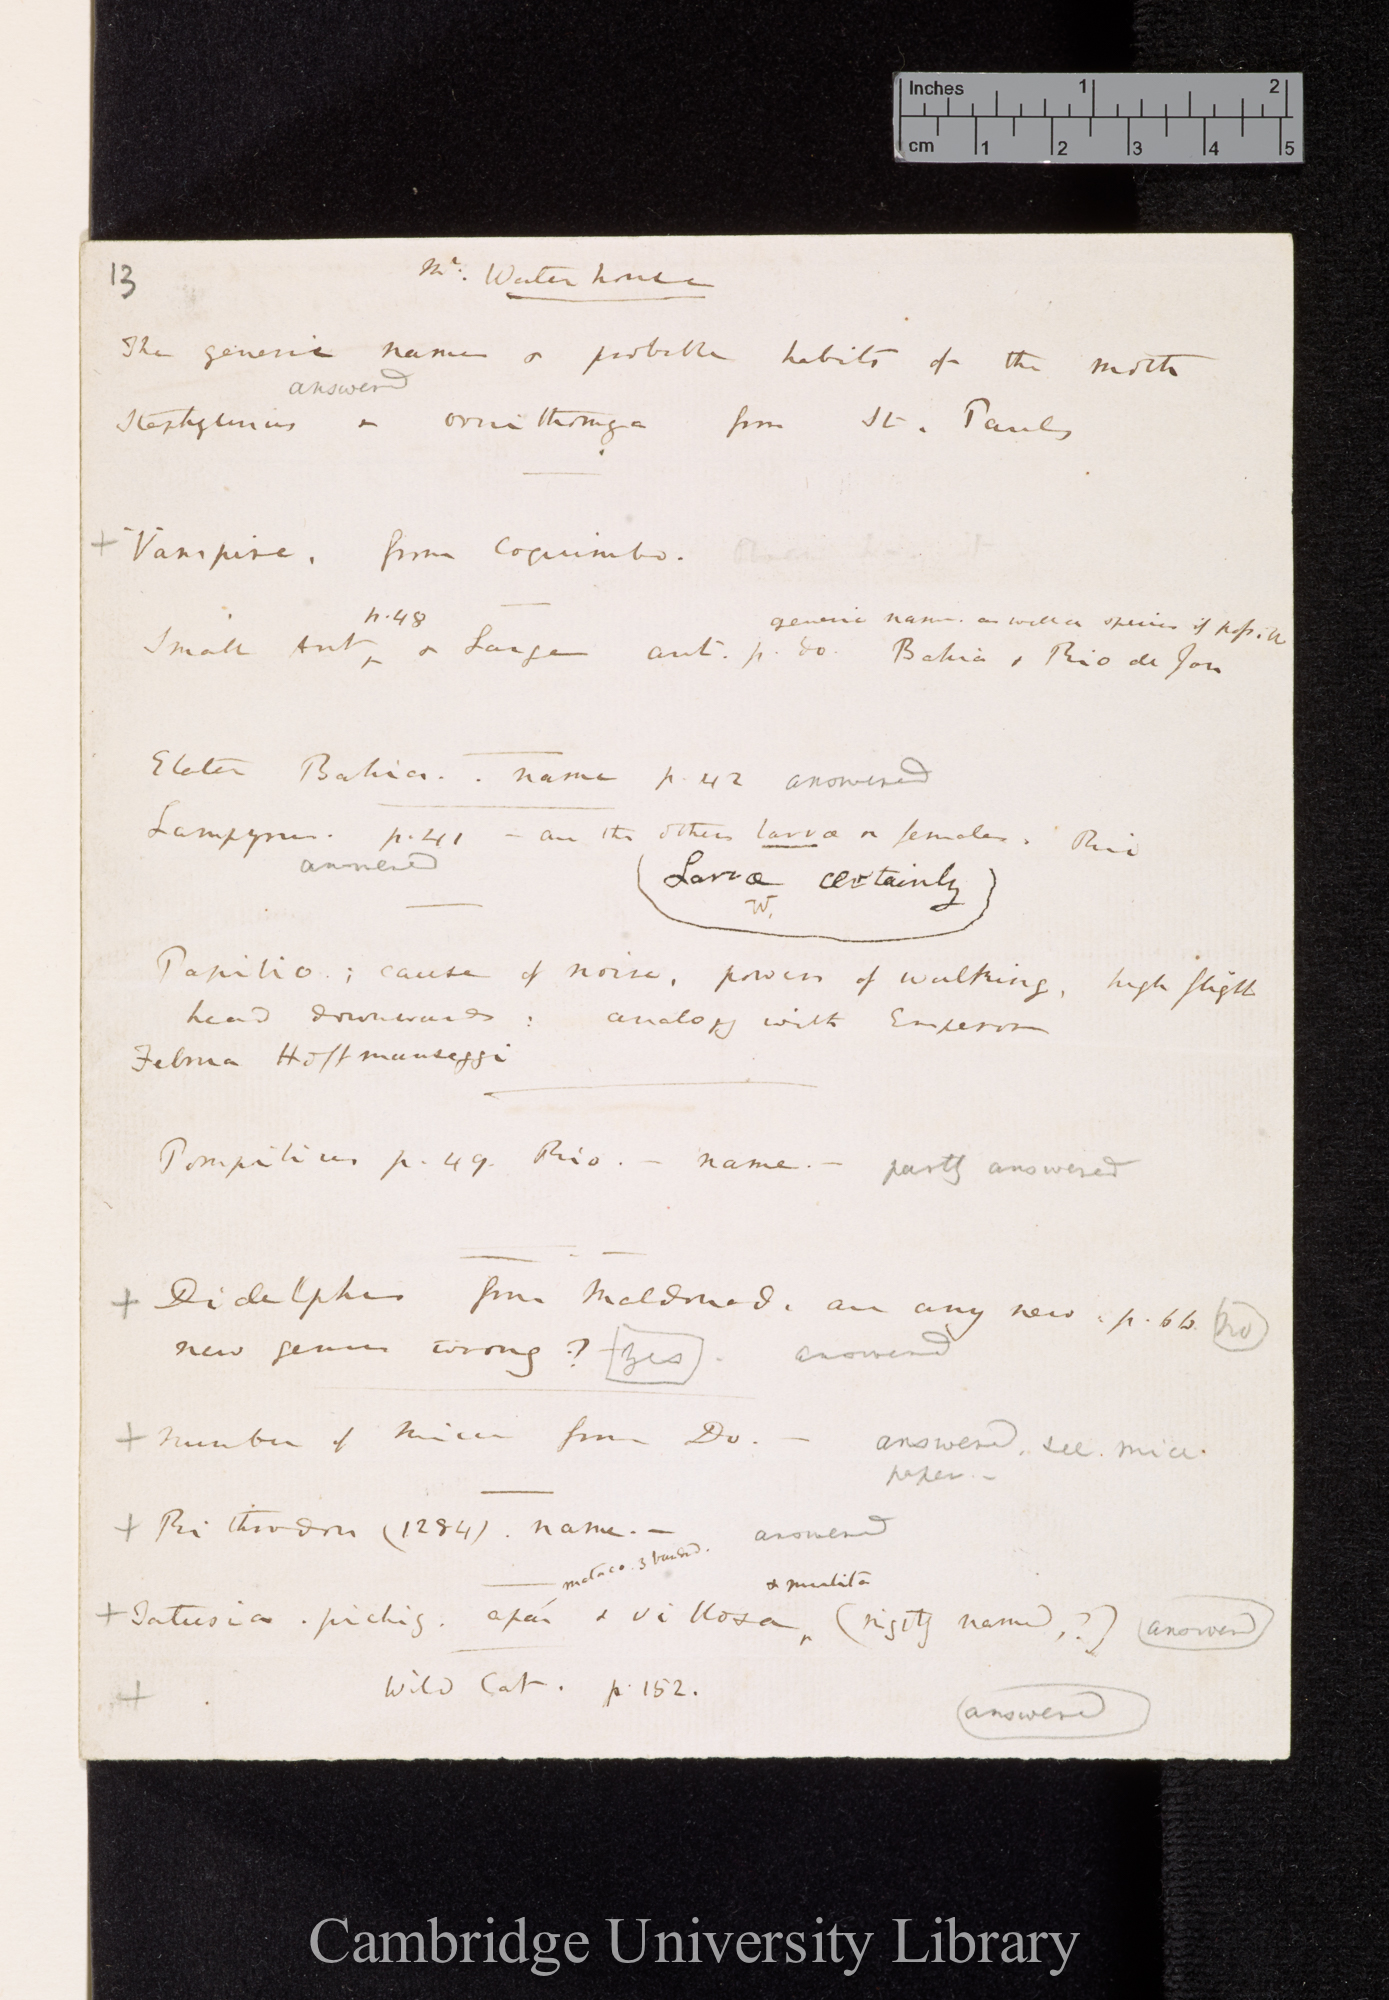 Inches 1 2
cm 1 2 3 4 5
13
Mr. Waterhouse
The generic name & probable habits of the moth
answered
Staphylinus & ornithomya from St. Pauls
+ Vampire, from Coquimbo.
p. 48
generic name. as well as species if possible
Small Ant, & Large ant. p. 50. Bahia & Rio de Jan
Elater Bahia. . name p. 42 answered
Lampyrus. p. 41 – are the others larvæ or females. Rio
answered
(Larvæ certainly)
W.
Papilio. ; cause of noise, powers of walking, high flight
head downwards : analogy with Emperor
Februa Hoffmanseggi
Pompilius p. 49. Rio. – name. – partly answered
+ Didelphus from Maldonado. are any new. p. 66. no
new genus wrong? yes. answered
+ Number of Mice from Do. – answered. see. mice.
paper. –
+ Rithrodon (1284). name. – answered
mataco. 3 banded.
& mulita
+ Tatusia . pichiy. apar & villosa, (rigtly named,?) answered
+ Wild Cat. p. 152.
answered
Cambridge University Library